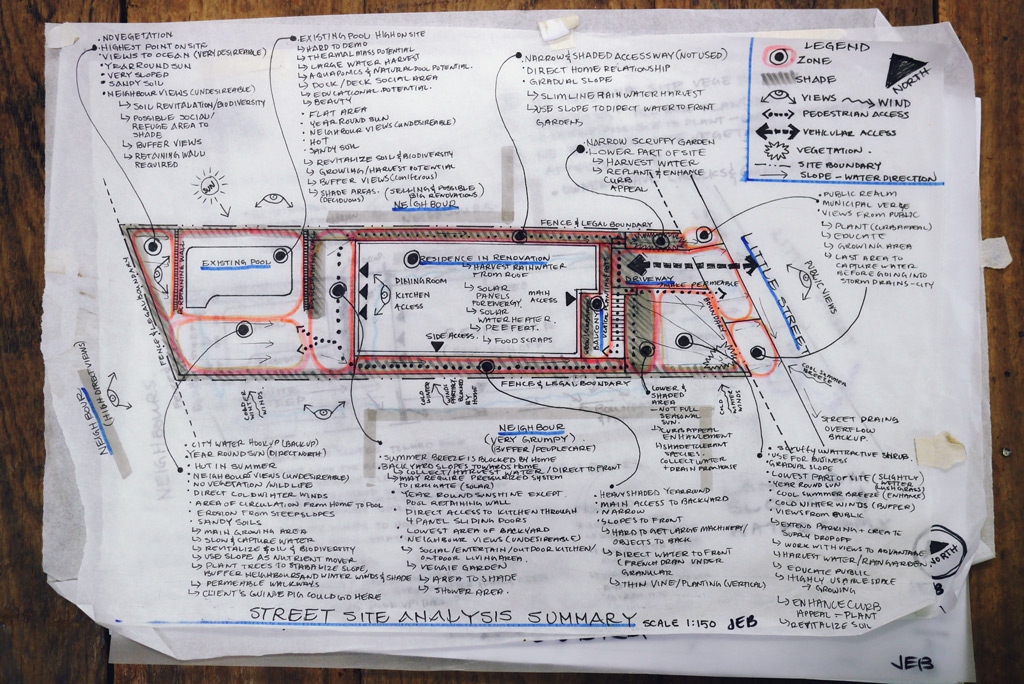 NO VEGETATION
HIGHEST POINT ON SITE
VIEWS TO OCEAN (VERY DESIREABLE)
YEAR ROUND SUN
VERY SLOPED
SANDY SOIL
NEIGHBOUR VIEWS (UNDESIREABLE)
SOIL REVITALATION/BIODIVERSITY
POSSIBLE SOCIAL/
REFUGE AREA TO
SHADE
BUFFER VIEWS
RETAINING WALL
REQUIRED
EXISTING POOL HIGH ON SITE
HARD TO DEMO
THERMAL MASS POTENTIAL
LARGE WATER HARVEST
AQUAPONICS & NATURAL POOL POTENTIAL.
DOCK/DECK SOCIAL AREA
EDUCATIONAL POTENTIAL.
BEAUTY
FLAT AREA
YEAR ROUND SUN
NEIGHBOUR VIEWS (UNDESIREABLE)
HOT
SANDY SOIL
REVITALIZE SOIL & BIODIVERSITY
GROWING/HARVEST POTENTIAL
BUFFER VIEWS (CONIFEROUS)
SHADE AREAS. (SELLING & POSSIBLE
(DECIDUOUS) BIG RENOVATIONS)
NEIGHBOUR
NARROW & SHADED ACCESSWAY (NOT USED)
DIRECT HOME RELATIONSHIP
GRADUAL SLOPE
SLIMLINE RAIN WATER HARVEST
USE SLOPE TO DIRECT WATER TO FRONT
GARDENS
NARROW SCRUFFY GARDEN
LOWER PART OF SITE
HARVEST WATER
REPLANT & ENHANCE
CURB
APPEAL
LEGEND
ZONE
SHADE
VIEWS WIND
PEDESTRIAN ACCESS
VEHICULAR ACCESS
VEGETATION
SITE BOUNDARY
SLOPE - WATER DIRECTION
NORTH
PUBLIC REALM
MUNICIPAL VERGE
VIEWS FROM PUBLIC
PLANT (CURB APPEAL)
EDUCATE
GROWING AREA
LAST AREA TO
CAPTURE WATER
BEFORE GOING INTO
STORM DRAINS-CITY
SUN
FENCE & LEGAL BOUNDARY
FENCE & LEGAL BOUNDARY
RETAINING WALL
EXISTING POOL
DINING ROOM
KITCHEN
ACCESS
RESIDENCE IN RENOVATION
HARVEST RAINWATER
FROM ROOF
SOLAR
PANELS
FOR ENERGY
SOLAR
WATER HEATER
PEE FERT.
FOOD SCRAPS
MAIN
ACCESS
SIDE ACCESS
BALCONY
DRIVEWAY
MAKE PERMEABLE
LITTLE STREET
PUBLIC VIEWS
COOL SUMMER
BREEZE
FENCE & LEGAL BOUNDARY
NEIGHBOUR
(HIGH DIRECT VIEWS)
COLD WINTER
WINDS
COLD WINTER
WINDS PARTIALLY
BLOCKED BY
HOME
COLD WINTER
WINDS
LOWER &
SHADED
AREA
NOT FULL
SEASONAL
SUN.
CURB APPEAL
ENHANCEMENT
SHADE TOLERANT
SPECIES
COLLECT WATER
+ DRAIN FROM HOUSE
STREET DRAINS
OVERFLOW
BACKUP.
CITY WATER HOOKUP (BACKUP)
YEAR ROUND SUN (DIRECT NORTH)
HOT IN SUMMER
NEIGHBOUR VIEWS (UNDESIREABLE)
NO VEGETATION/WILDLIFE
DIRECT COLD WINTER WINDS
AREA OF CIRCULATION FROM HOME TO POOL
EROSION FROM STEEP SLOPES
SANDY SOILS
MAIN GROWING AREA
SLOW & CAPTURE WATER
REVITALIZE SOIL & BIODIVERSITY
USE SLOPE AS NUTRIENT MOVER
PLANT TREES TO STABALIZE SLOPE,
BUFFER NEIGHBOURS AND WINTER WINDS & SHADE
PERMEABLE WALKWAYS
CLIENT'S GUINEA PIG COULD GO HERE
NEIGHBOUR
(VERY GRUMPY)
(BUFFER/PEOPLE CARE)
SUMMER BREEZE IS BLOCKED BY HOME
BACKYARD SLOPES TOWARDS HOME
COLLECT/HARVEST WATER/DIRECT TO FRONT
MAY REQUIRE PRESSURIZED SYSTEM
TO IRRIGATE (SOLAR)
YEAR ROUND SUNSHINE EXCEPT
POOL RETAINING WALL
DIRECT ACCESS TO KITCHEN THROUGH
4 PANEL SLIDING DOORS
LOWEST AREA OF BACKYARD
NEIGHBOUR VIEWS (UNDESIREABLE)
SOCIAL/ENTERTAIN/OUTDOOR KITCHEN/
OUTDOOR LIVING AREA.
VEGGIE GARDEN
AREA TO SHADE
SHOWER AREA.
HEAVY SHADED YEAR ROUND
MAIN ACCESS TO BACKYARD
NARROW
SLOPES TO FRONT
HARD TO GET LARGE MACHINERY/
OBJECTS TO BACK
DIRECT WATER TO FRONT
(FRENCH DRAIN UNDER
GRANULAR
THIN VINE/PLANTING (VERTICAL)
SCRUFFY UNATTRACTIVE SHRUB.
USE FOR BUSINESS
GRADUAL SLOPE
LOWEST PART OF SITE (SLIGHTLY
YEAR ROUND SUN
COOL SUMMER BREEZE (ENHANCE)
COLD WINTER WINDS (BUFFER)
VIEWS FROM PUBLIC
EXTEND PARKING + CREATE
SUPPLY DROP OFF
WORK WITH VIEWS TO ADVANTAGE
HARVEST WATER/RAIN GARDEN
EDUCATE PUBLIC
HIGHLY USABLE SPACE
GROWING
ENHANCE CURB
APPEAL - PLANT
REVITALIZE SOIL
NORTH
STREET SITE ANALYSIS SUMMARY SCALE 1:150 JEB
JEB